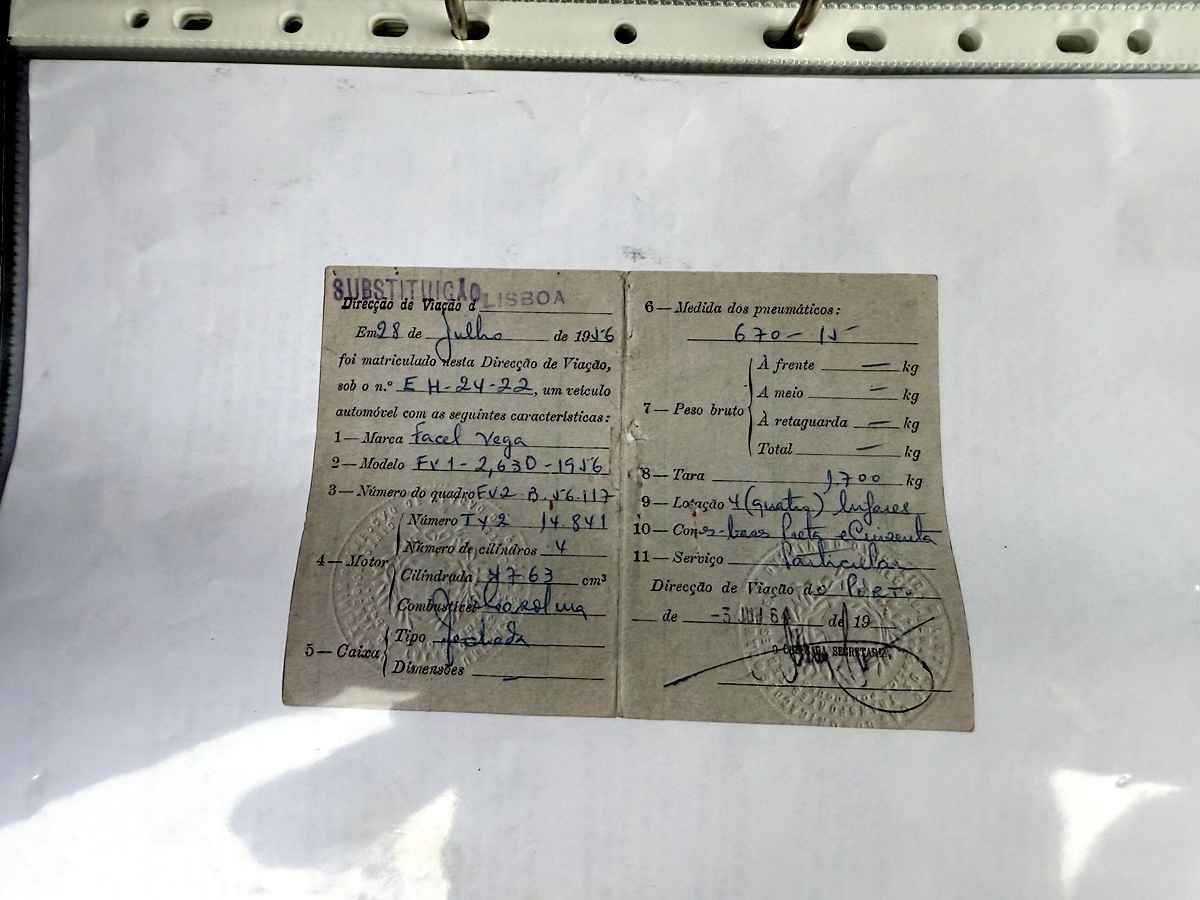 SUBSTITUIÇÃO
Direcção de Viação d LISBOA
Em 28 de Julho de 1956
foi matriculado nesta Direcção de Viação,
sob o n.º EH-24-22, um veículo
automóvel com as seguintes características:
1 — Marca Facel Vega
2 — Modelo FV1-2,630-1956
3 — Número do quadro FV2 B.56.117
4 — Motor
Número TY2 14.841
Número de cilindros 4
Cilindrada 4763 cm³
Combustível Gasolina
5 — Caixa
Tipo fechada
Dimensões —
6 — Medida dos pneumáticos:
670-15
7 — Peso bruto
À frente — kg
A meio — kg
À retaguarda — kg
Total — kg
8 — Tara 1,700 kg
9 — Lotação 4 (quatro) lugares
10 — preta e Cinzenta
11 — Serviço Particular
Direcção de Viação do PORTO
de -3 JUN 6 de 19
SECRETARIA,